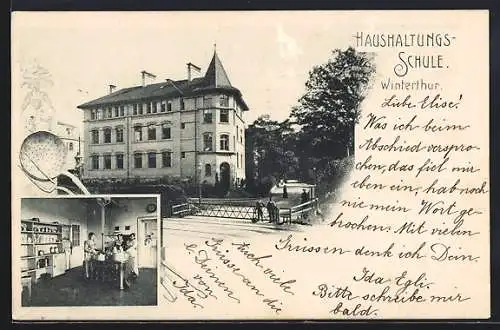 HAUSHALTUNGS-
SCHULE.
Winterthur.
Liebe Elise!
Was ich beim
Abschied verspro-
chen, das fiel mir
eben ein, hab noch
nie mein Wort ge-
brochen. Mit vielen
Grüssen denk ich Dein.
Ida Egli.
Bitte schreibe mir
bald.
Auch viele
Grüsse an die
l. Deinen
von
Ida.